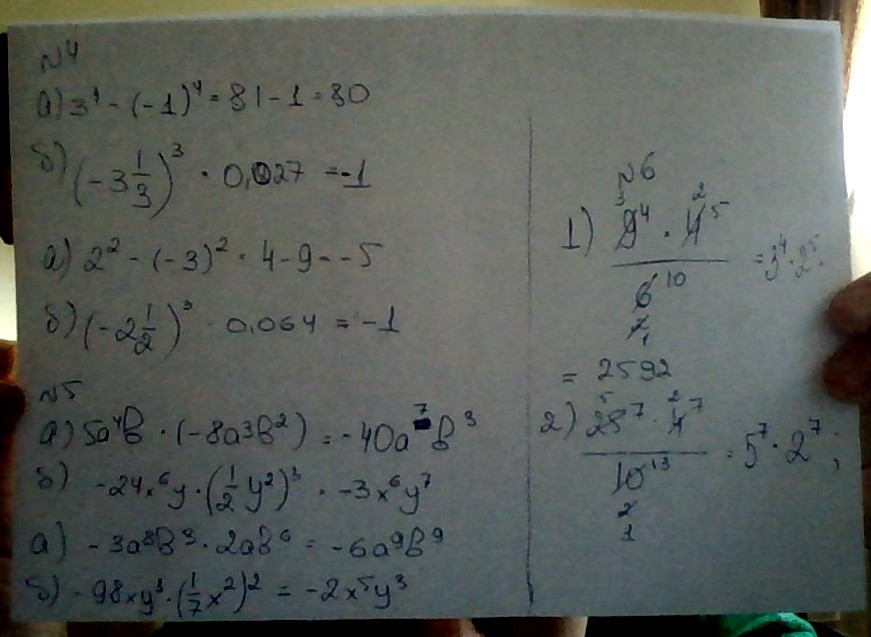 №4
а) 3⁴ - (-1)⁴ = 81 - 1 = 80
б) (-3 1/3)³ · 0,027 = -1
а) 2² - (-3)² · 4 - 9 - -5
б) (-2 1/2)³ · 0,064 = -1
№5
а) 5a⁴b · (-8a³b²) = -40a⁷b³
б) -24x⁶y · (1/2 y²)³ · -3x⁶y⁷
а) -3a⁸b³ · 2ab⁶ = -6a⁹b⁹
б) -98xy³ · (1/7 x²)² = -2x⁵y³
№6
1) 9⁴ · 4⁵ / 6¹⁰ = 3⁴ · 2⁵
= 2592
2) 25⁷ · 4⁷ / 10¹³ = 5⁷ · 2⁷;